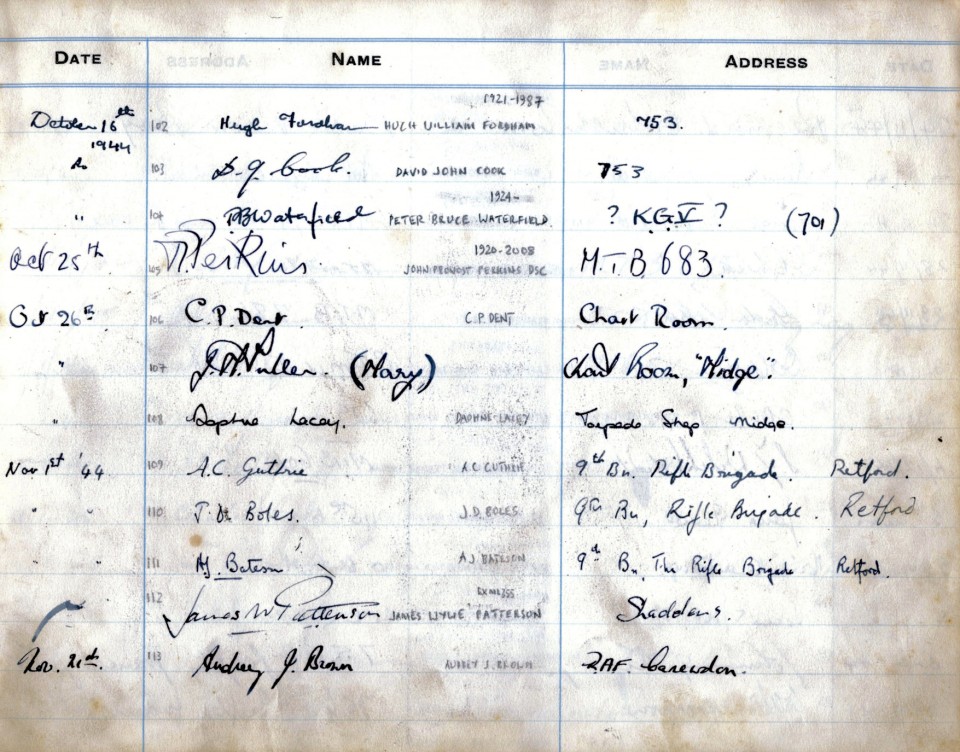 DATE NAME ADDRESS
1921-1987
October 16th 102 Hugh Fordham HUGH WILLIAM FORDHAM 753.
1944
Do 103 D. J. Cook. DAVID JOHN COOK 753
1924-
" 104 PBWaterfield PETER BRUCE WATERFIELD ? K.G.V ? (701)
1920-2008
Oct 25th 105 Perkins JOHN PROVOST PERKINS DSC M.T.B 683.
Oct 26th 106 C.P. Dent. C.P. DENT Chart Room.
" 107 Puller. (Mary) Chart Room, "Midge".
" 108 Daphne Lacey. DAPHNE LACEY Torpedo Shop Midge.
Nov 1st '44 109 A.C. Guthrie A.C. GUTHRIE 9th Bn. Rifle Brigade. Retford.
" " 110 J. D. Boles. J.D. BOLES 9th Bn, Rifle Brigade. Retford
" " 111 AJ. Bateson AJ BATESON 9th Bn, The Rifle Brigade Retford.
112
James W Patterson JAMES WYLIE PATTERSON
Nov. 21st. 113 Audrey J. Brown AUDREY J. BROWN RAF.